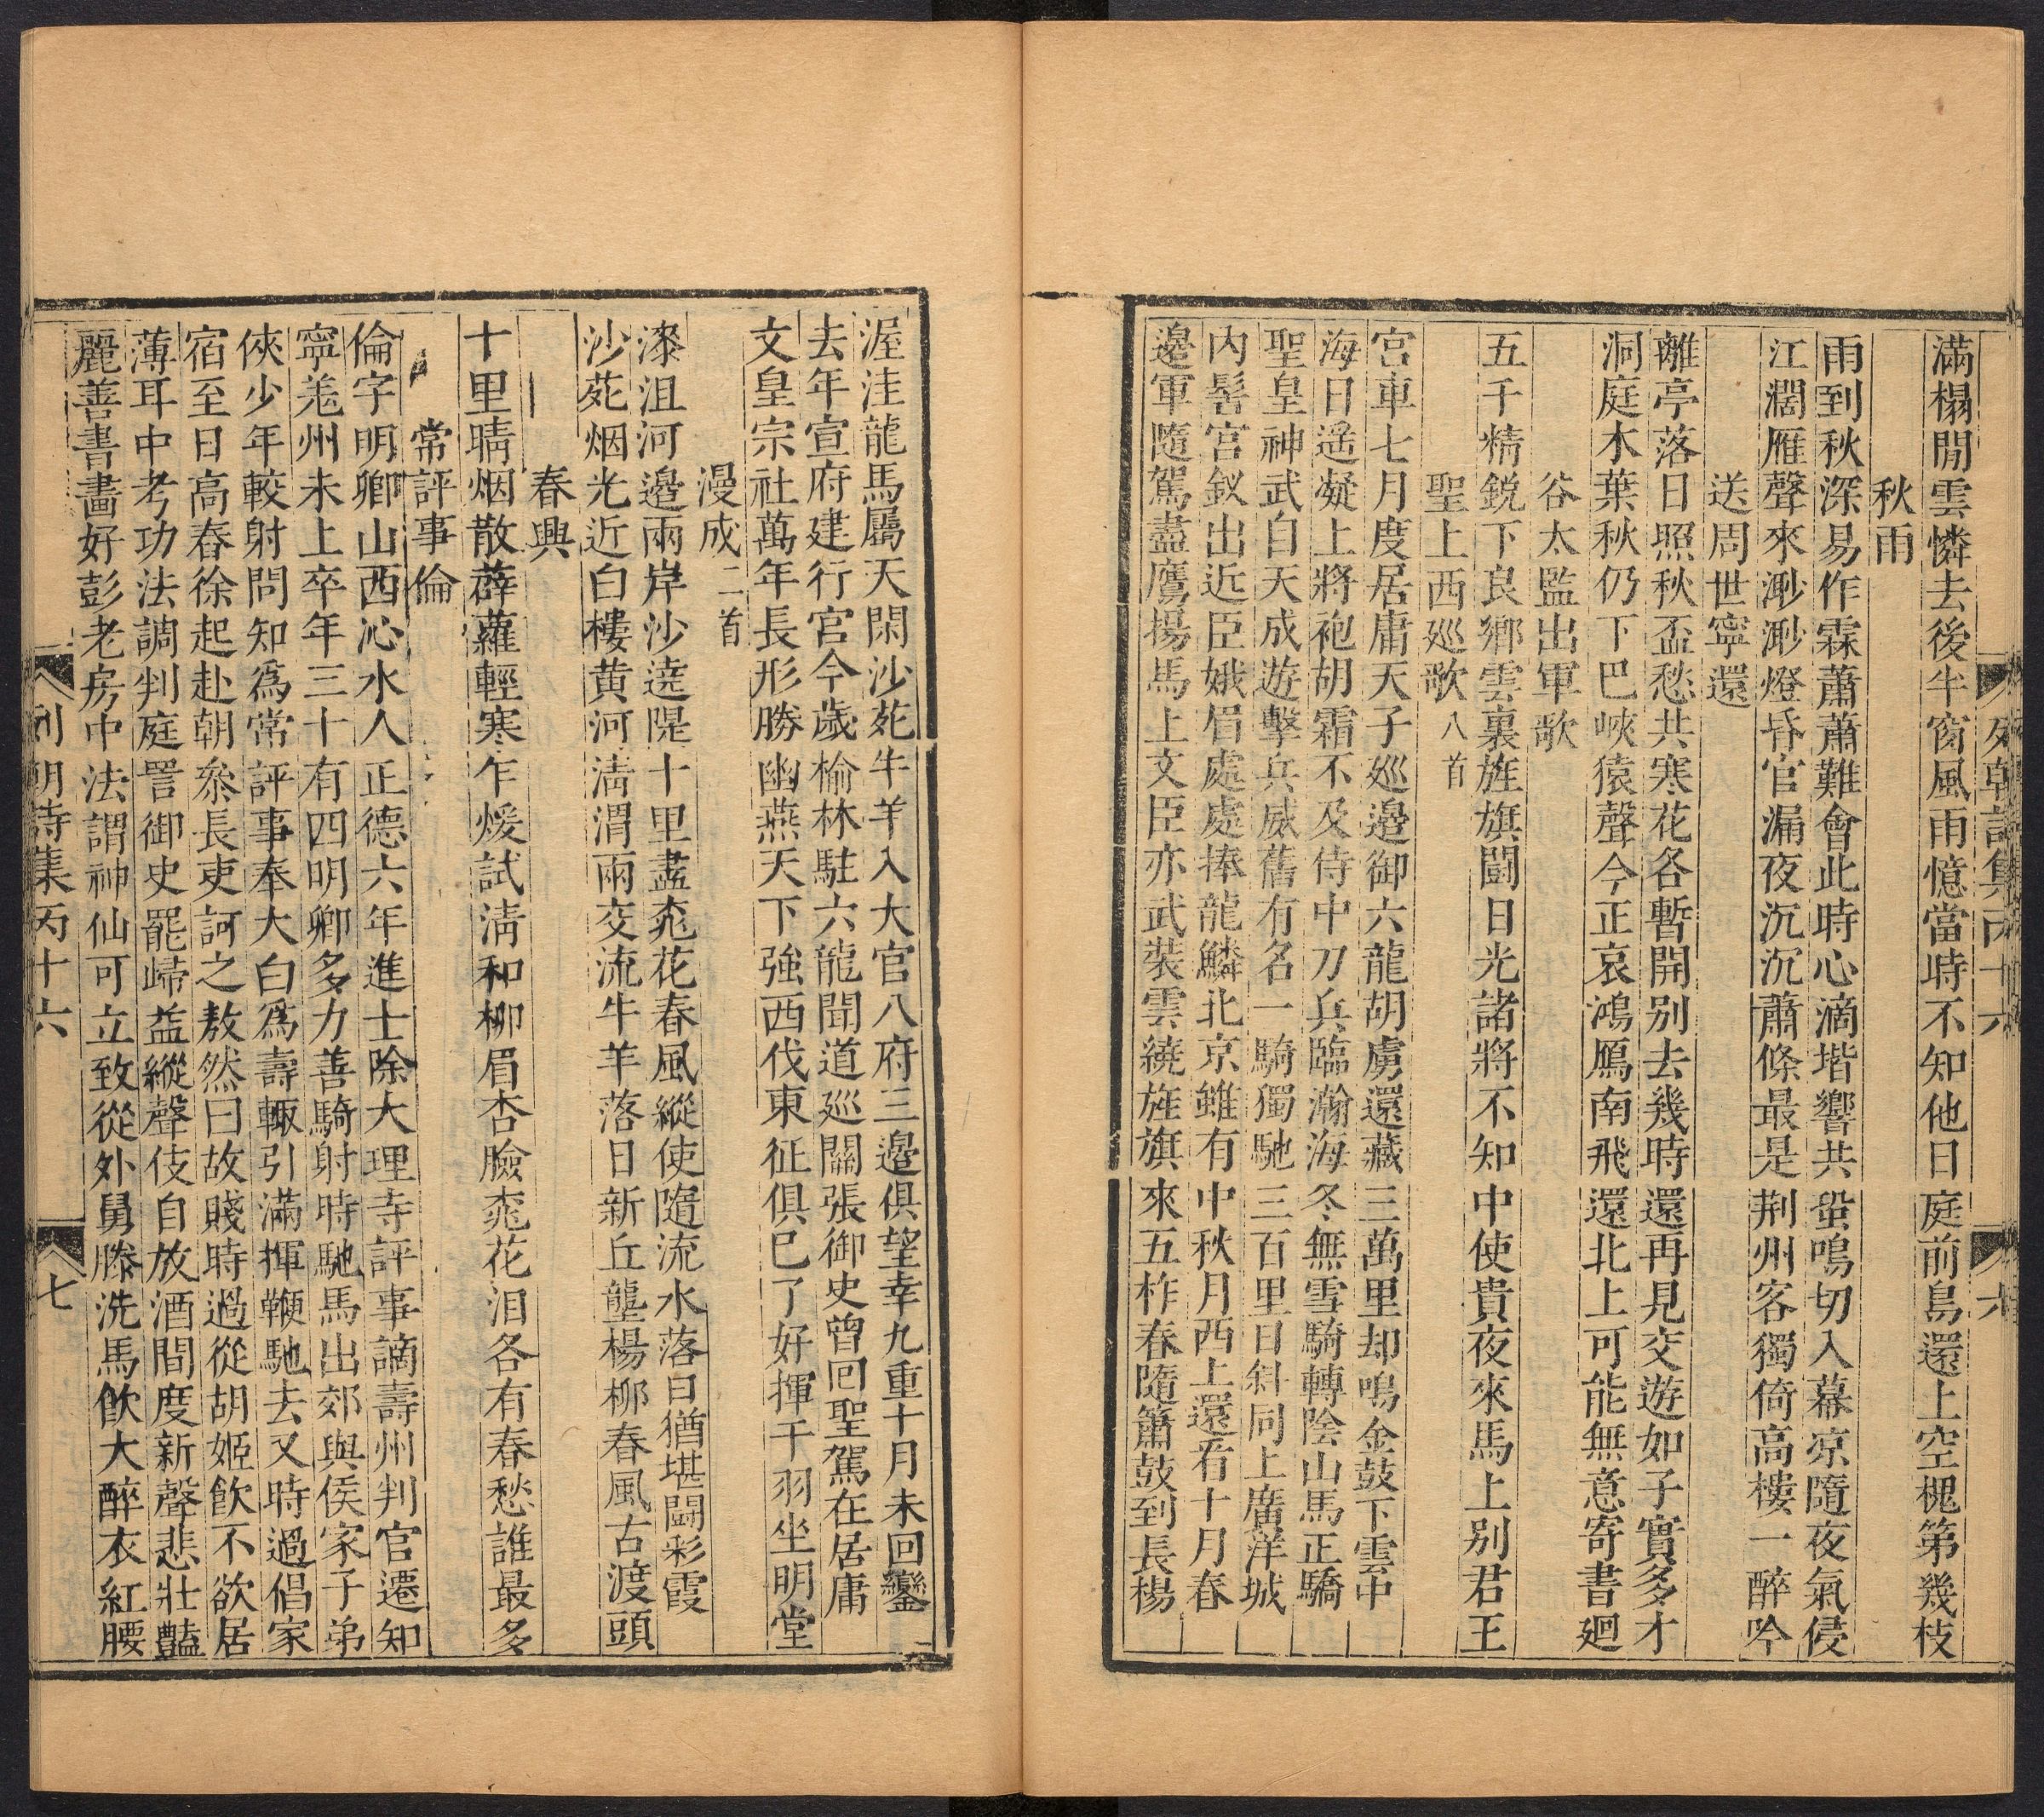 列朝詩集丙十六
六
滿榻閒雲憐去後半窗風雨憶當時不知他日庭前鳥還上空槐第幾枝
秋雨
雨到秋深易作霖蕭蕭難會此時心滴堦響共蛩鳴切入幕凉隨夜氣侵
江濶雁聲來渺渺燈昏官漏夜沉沉蕭條最是荆州客獨倚高樓一醉吟
送周世寧還
離亭落日照秋盃愁共寒花各暫開别去幾時還再見交遊如子實多才
洞庭木葉秋仍下巴峽猿聲今正哀鴻鴈南飛還北上可能無意寄書廻
谷太監出軍歌
五千精銳下良鄉雲裏旌旗閗日光諸將不知中使貴夜來馬上别君王
聖上西廵歌八首
宮車七月度居庸天子廵邊御六龍胡虜還藏三萬里却鳴金鼓下雲中
海日遙凝上將袍胡霜不及侍中刀兵臨瀚海冬無雪騎轉陰山馬正驕
聖皇神武自天成遊擊兵威舊有名一騎獨馳三百里日斜同上廣洋城
內髻宮釵出近臣娥眉處處捧龍鱗北京雖有中秋月西上還看十月春
邊軍隨駕盡鷹揚馬上文臣亦武裝雲繞旌旗來五柞春隨簫鼓到長楊
渥洼龍馬屬天閑沙苑牛羊入大官八府三邊俱望幸九重十月未回鑾
去年宣府建行宮今歲榆林駐六龍聞道廵關張御史曾回聖駕在居庸
文皇宗社萬年長形勝幽燕天下強西伐東征俱已了好揮干羽坐明堂
漫成二首
漆沮河邊兩岸沙遶隄十里盡桃花春風縱使隨流水落日猶堪閗彩霞
沙苑烟光近白樓黃河淸渭兩交流牛羊落日新丘壟楊柳春風古渡頭
春興
十里晴烟散薜蘿輕寒乍煖試淸和柳眉杏臉桃花泪各有春愁誰最多
常評事倫
倫字明卿山西沁水人正德六年進士除大理寺評事謫壽州判官遷知
寧羌州未上卒年三十有四明卿多力善騎射時馳馬出郊與侯家子弟
俠少年較射問知爲常評事奉大白爲壽輙引滿揮鞭馳去又時過倡家
宿至日高舂徐起赴朝叅長吏訶之敖然曰故賤時過從胡姬飲不欲居
薄耳中考功法調判庭詈御史罷歸益縱聲伎自放酒間度新聲悲壯豔
麗善書畫好彭老房中法謂神仙可立致從外舅滕洗馬飲大醉衣紅腰
列朝詩集丙十六
七